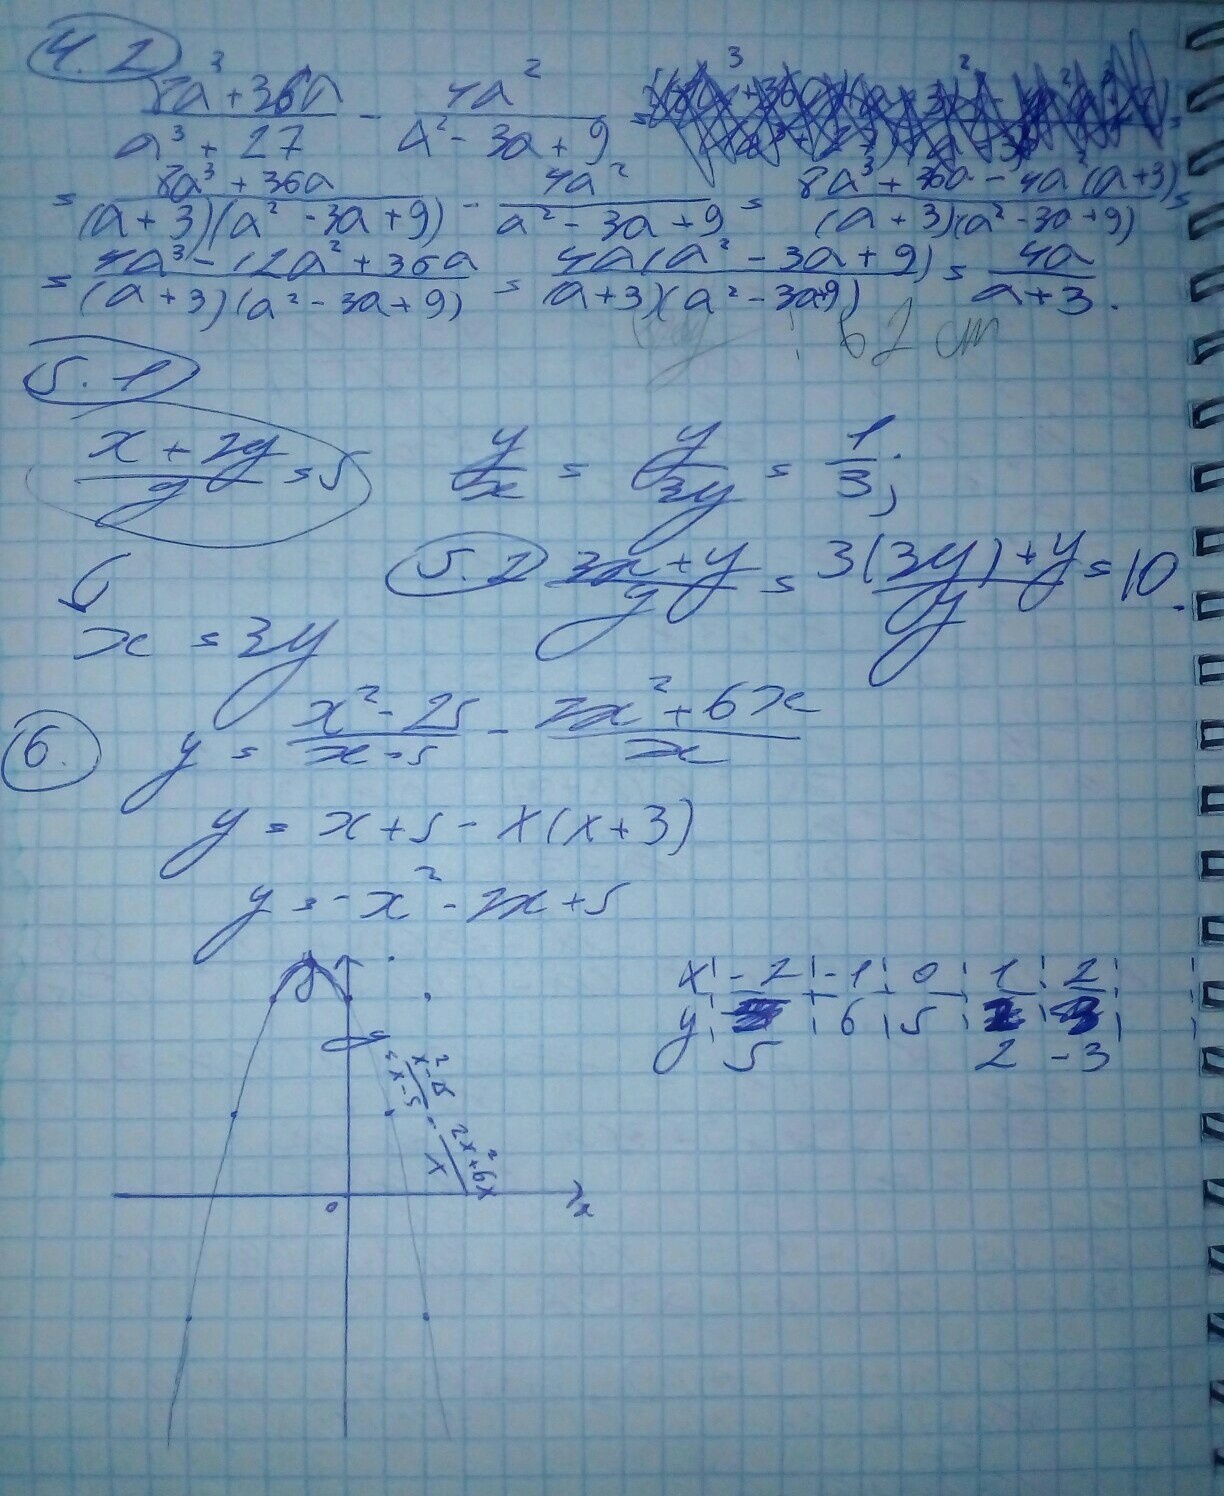 4.2
8a³+36a/a³+27 - 4a²/a²-3a+9 =
= 8a³+36a/(a+3)(a²-3a+9) - 4a²/a²-3a+9 = 8a³+36a-4a²(a+3)/(a+3)(a²-3a+9) =
= 4a³-12a²+36a/(a+3)(a²-3a+9) = 4a(a²-3a+9)/(a+3)(a²-3a+9) = 4a/a+3.
62 cm
5.1
x+2y/y = 5 y/x = y/3y = 1/3;
5.2 3x+y/y = 3(3y)+y/y = 10.
x = 3y
6. y = x²-25/x-5 - 2x²+6x/x
y = x+5-x(x+3)
y = -x²-2x+5
x -2 -1 0 1 2
y 5 6 5 2 -3
y
0
x